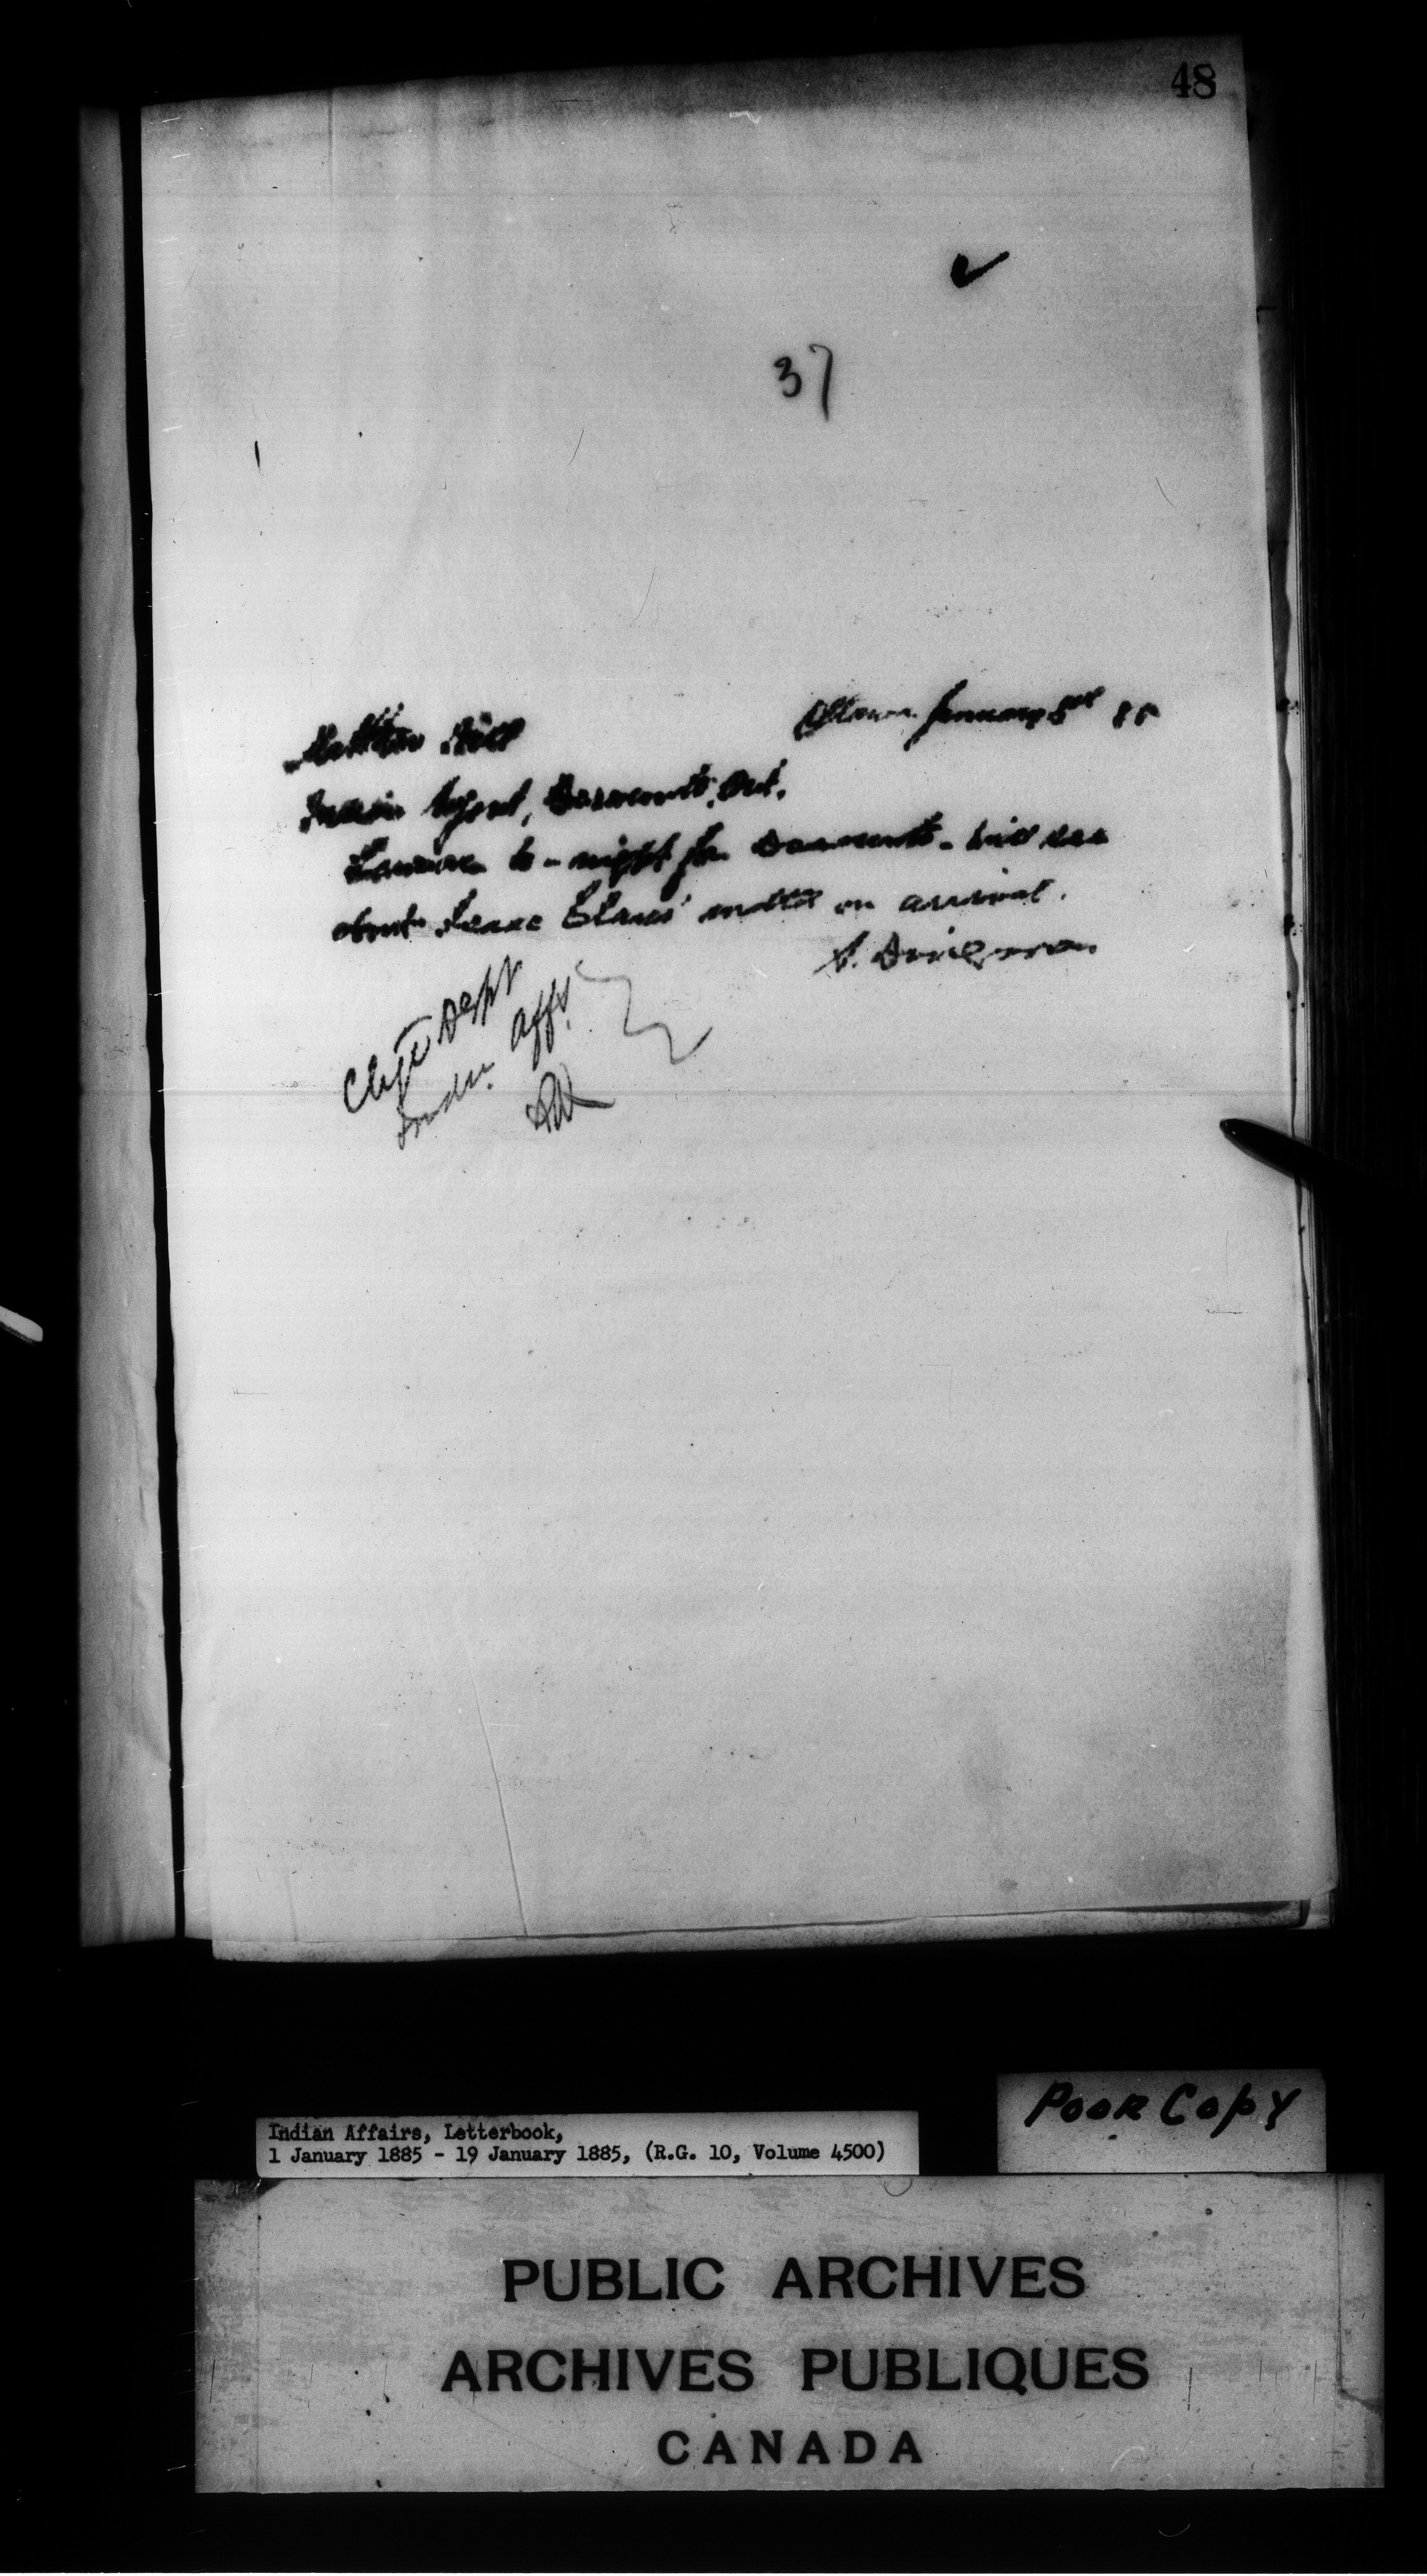 48
37
Ottawa January 3rd 85
Matthew Hill
Indian Agent, Deseronto, Ont.
Leaving to-night for Deseronto. Will see
about Isaac Claus' matter on arrival.
A. Dingman
Chge Dept
Indn. Affs.
Poor Copy
Indian Affairs, Letterbook,
1 January 1885 - 19 January 1885, (R.G. 10, Volume 4500)
PUBLIC ARCHIVES
ARCHIVES PUBLIQUES
CANADA